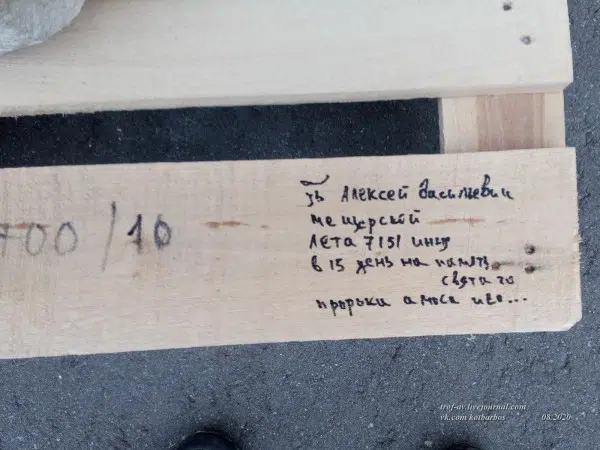 700/10
зъ Алексей Васильевич
мещерской
лета 7151 июня
в 15 день на память
святаго
пророка амоса иго...
trof-av.livejournal.com
vk.com/kotbarbos 08.2020